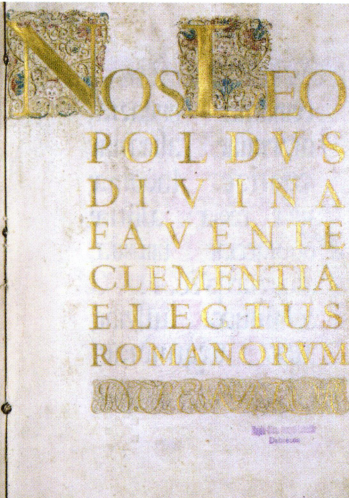 NOS LEO
POLDVS
DIVINA
FAVENTE
CLEMENTIA
ELECTUS
ROMANORVM